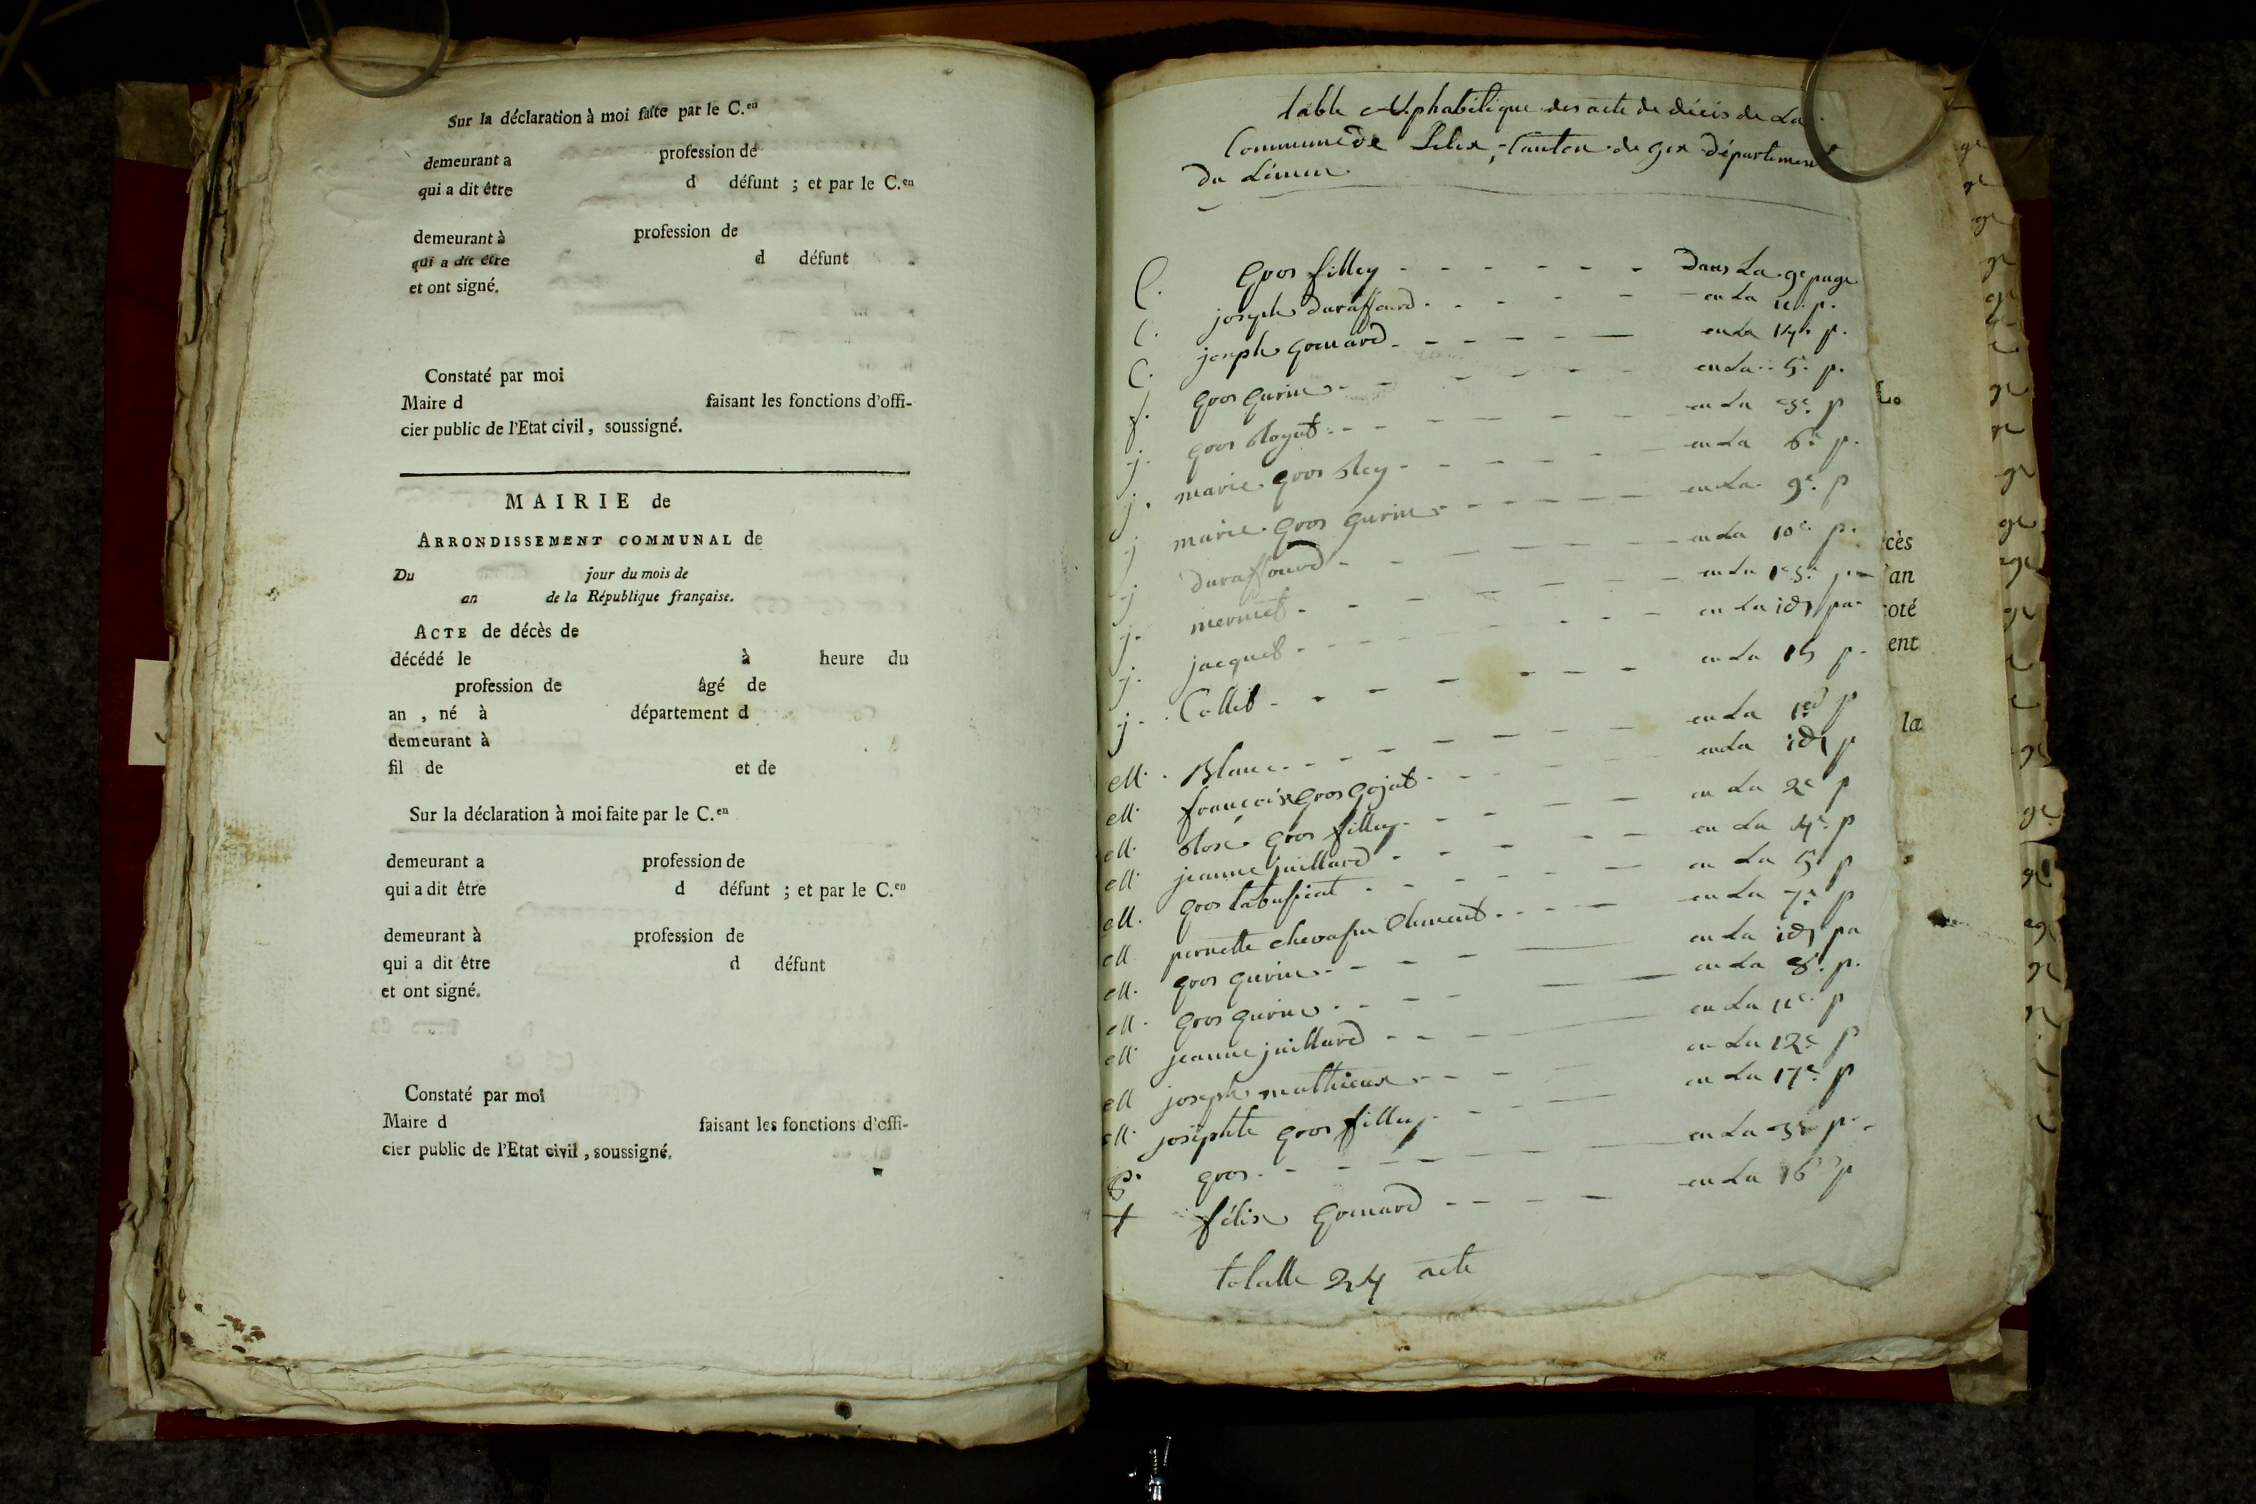 Sur la déclaration à moi faite par le C.en
demeurant a profession de
qui a dit être d défunt ; et par le C.en
demeurant à profession de
qui a dit être d défunt
et ont signé.
Constaté par moi
Maire d faisant les fonctions d'offi-
cier public de l'Etat civil, soussigné.
MAIRIE de
ARRONDISSEMENT COMMUNAL de
Du jour du mois de
an de la République française.
ACTE de décès de
décédé le à heure du
profession de âgé de
an , né à département d
demeurant à
fil de et de
Sur la déclaration à moi faite par le C.en
demeurant a profession de
qui a dit être d défunt ; et par le C.en
demeurant à profession de
qui a dit être d défunt
et ont signé.
Constaté par moi
Maire d faisant les fonctions d'offi-
cier public de l'Etat civil, soussigné.
table Alphabétique des acte de décès de La
Commune de Lelex, Canton de Gex département
du Léman
C. gros filley - - - - - - Dans La 9e page
C. joseph duraffourd - - - - - en La 11. p.
C. joseph gomard - - - - - - en La 14e p.
j. gros gurin - - - - - - en La 5. p.
j. gros - - - - - - en La 3e. p
j. marie gros - - - - - en La 6e p.
j marie gros gurin - - - - - en La 9e. p
j duraffourd - - - - - - en La 10e p.
j. mermet - - - - - - en La 13e p
j. jacquet - - - - - - en La id pa
j. Collet - - - - - - en La 15 p.
M. Blanc - - - - - - en La 1er p
M. françoise gros gojat - - - - - en La id p
M. gros filley - - - - - en La 2e p
M jeanne juillard - - - - - en La 4e. p
M. gros - - - - - en La 5 p
M pernette - - - - en La 7e p
M. gros gurin - - - - en La id pa
M. gros gurin - - - - en La 8e. p.
M jeanne juillard - - - en La 11e p
M joseph mathieux - - - en La 12e p
M. josephte gros filley - - - en La 17e. p
P. gros - - - - - - en La 3e p.
f félix gomard - - - - en La 16 p
totalle 24 acte
cès
an
coté
ent
la